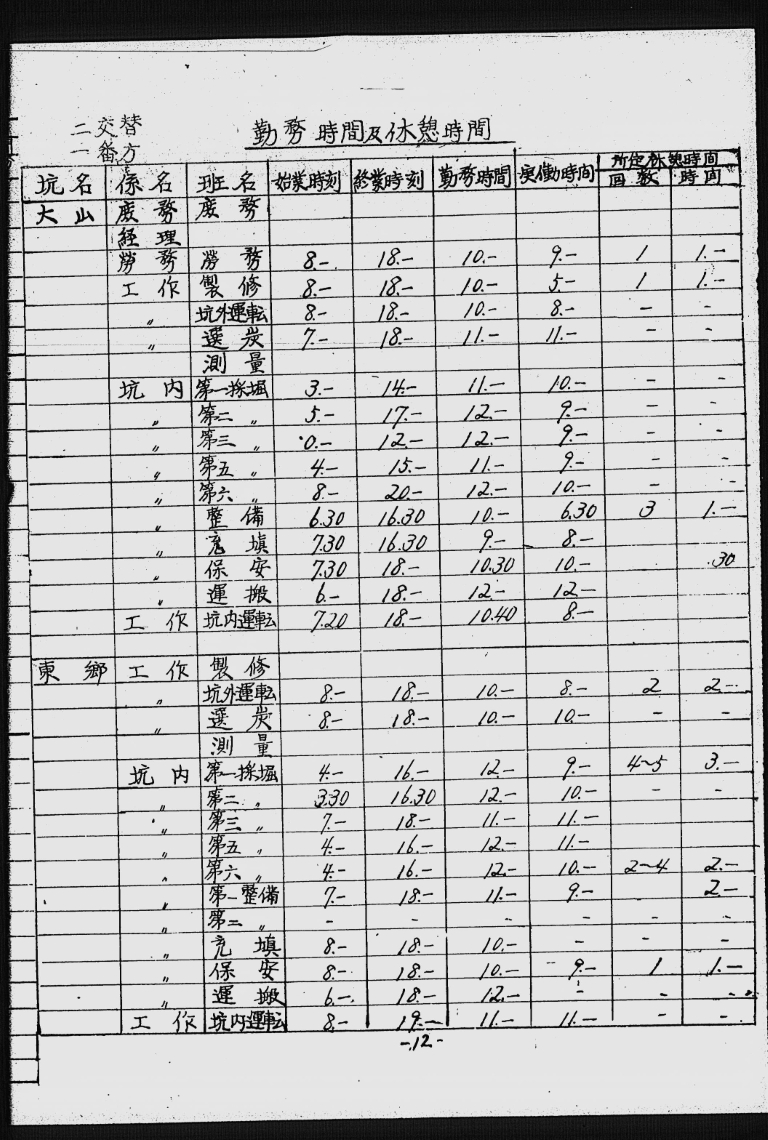 二交替
一番方
勤務時間及休憩時間
坑名 係名 班名 始業時刻 終業時刻 勤務時間 実働時間 所定休憩時間 回数 時间
大山 庶務 庶務
経理
労務 労務 8.- 18.- 10.- 9.- 1 1.-
工作 製修 8.- 18.- 10.- 5.- 1 1.-
〃 坑外運転 8.- 18.- 10.- 8.- - -
〃 選炭 7.- 18.- 11.- 11.- - -
測量
坑内 第一採掘 3.- 14.- 11.- 10.- - -
〃 第二〃 5.- 17.- 12.- 9.- - -
〃 第三〃 0.- 12.- 12.- 9.- - -
〃 第五〃 4.- 15.- 11.- 9.- - -
〃 第六〃 8.- 20.- 12.- 10.- - -
〃 整備 6.30 16.30 10.- 6.30 3 1.-
〃 充填 7.30 16.30 9.- 8.-
〃 保安 7.30 18.- 10.30 10.- .30
〃 運搬 6.- 18.- 12.- 12.-
工作 坑内運転 7.20 18.- 10.40 8.-
東郷 工作 製修
〃 坑外運転 8.- 18.- 10.- 8.- 2 2.-
〃 選炭 8.- 18.- 10.- 10.- - -
測量
坑内 第一採掘 4.- 16.- 12.- 9.- 4~5 3.-
〃 第二〃 3.30 16.30 12.- 10.- - -
〃 第三〃 7.- 18.- 11.- 11.-
〃 第五〃 4.- 16.- 12.- 11.-
〃 第六〃 4.- 16.- 12.- 10.- 2~4 2.-
〃 第一整備 7.- 18.- 11.- 9.- 2.-
〃 第二〃 - - - - - -
〃 充填 8.- 18.- 10.- - - -
〃 保安 8.- 18.- 10.- 9.- 1 1.-
〃 運搬 6.- 18.- 12.- - - -
工作 坑内運転 8.- 19.- 11.- 11.- - -
-12-